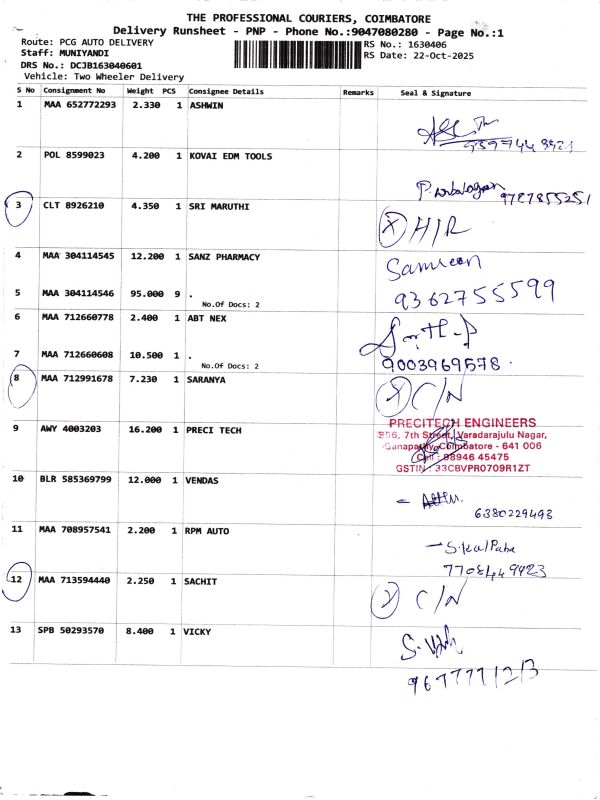 THE PROFESSIONAL COURIERS, COIMBATORE
Delivery Runsheet - PNP - Phone No.:9047080280 - Page No.:1
Route: PCG AUTO DELIVERY RS No.: 1630406
Staff: MUNIYANDI RS Date: 22-Oct-2025
DRS No.: DCJB163040601
Vehicle: Two Wheeler Delivery
S No Consignment No Weight PCS Consignee Details Remarks Seal & Signature
1 MAA 652772293 2.330 1 ASHWIN
2 POL 8599023 4.200 1 KOVAI EDM TOOLS
9787855251
3 CLT 8926210 4.350 1 SRI MARUTHI
X H/R
4 MAA 304114545 12.200 1 SANZ PHARMACY
Samreen
5 MAA 304114546 95.000 9 .
No.Of Docs: 2
9362755599
6 MAA 712660778 2.400 1 ABT NEX
7 MAA 712660608 10.500 1 .
No.Of Docs: 2
9003969578.
8 MAA 712991678 7.230 1 SARANYA
X C/N
9 AWY 4003203 16.200 1 PRECI TECH
PRECITECH ENGINEERS
856, 7th Street, Varadarajulu Nagar,
Ganapathy, Coimbatore - 641 006
Cell : 98946 45475
GSTIN : 33CBVPR0709R1ZT
10 BLR 585369799 12.000 1 VENDAS
6380229493
11 MAA 708957541 2.200 1 RPM AUTO
7708449423
12 MAA 713594440 2.250 1 SACHIT
X C/N
13 SPB 50293570 8.400 1 VICKY
9677771213